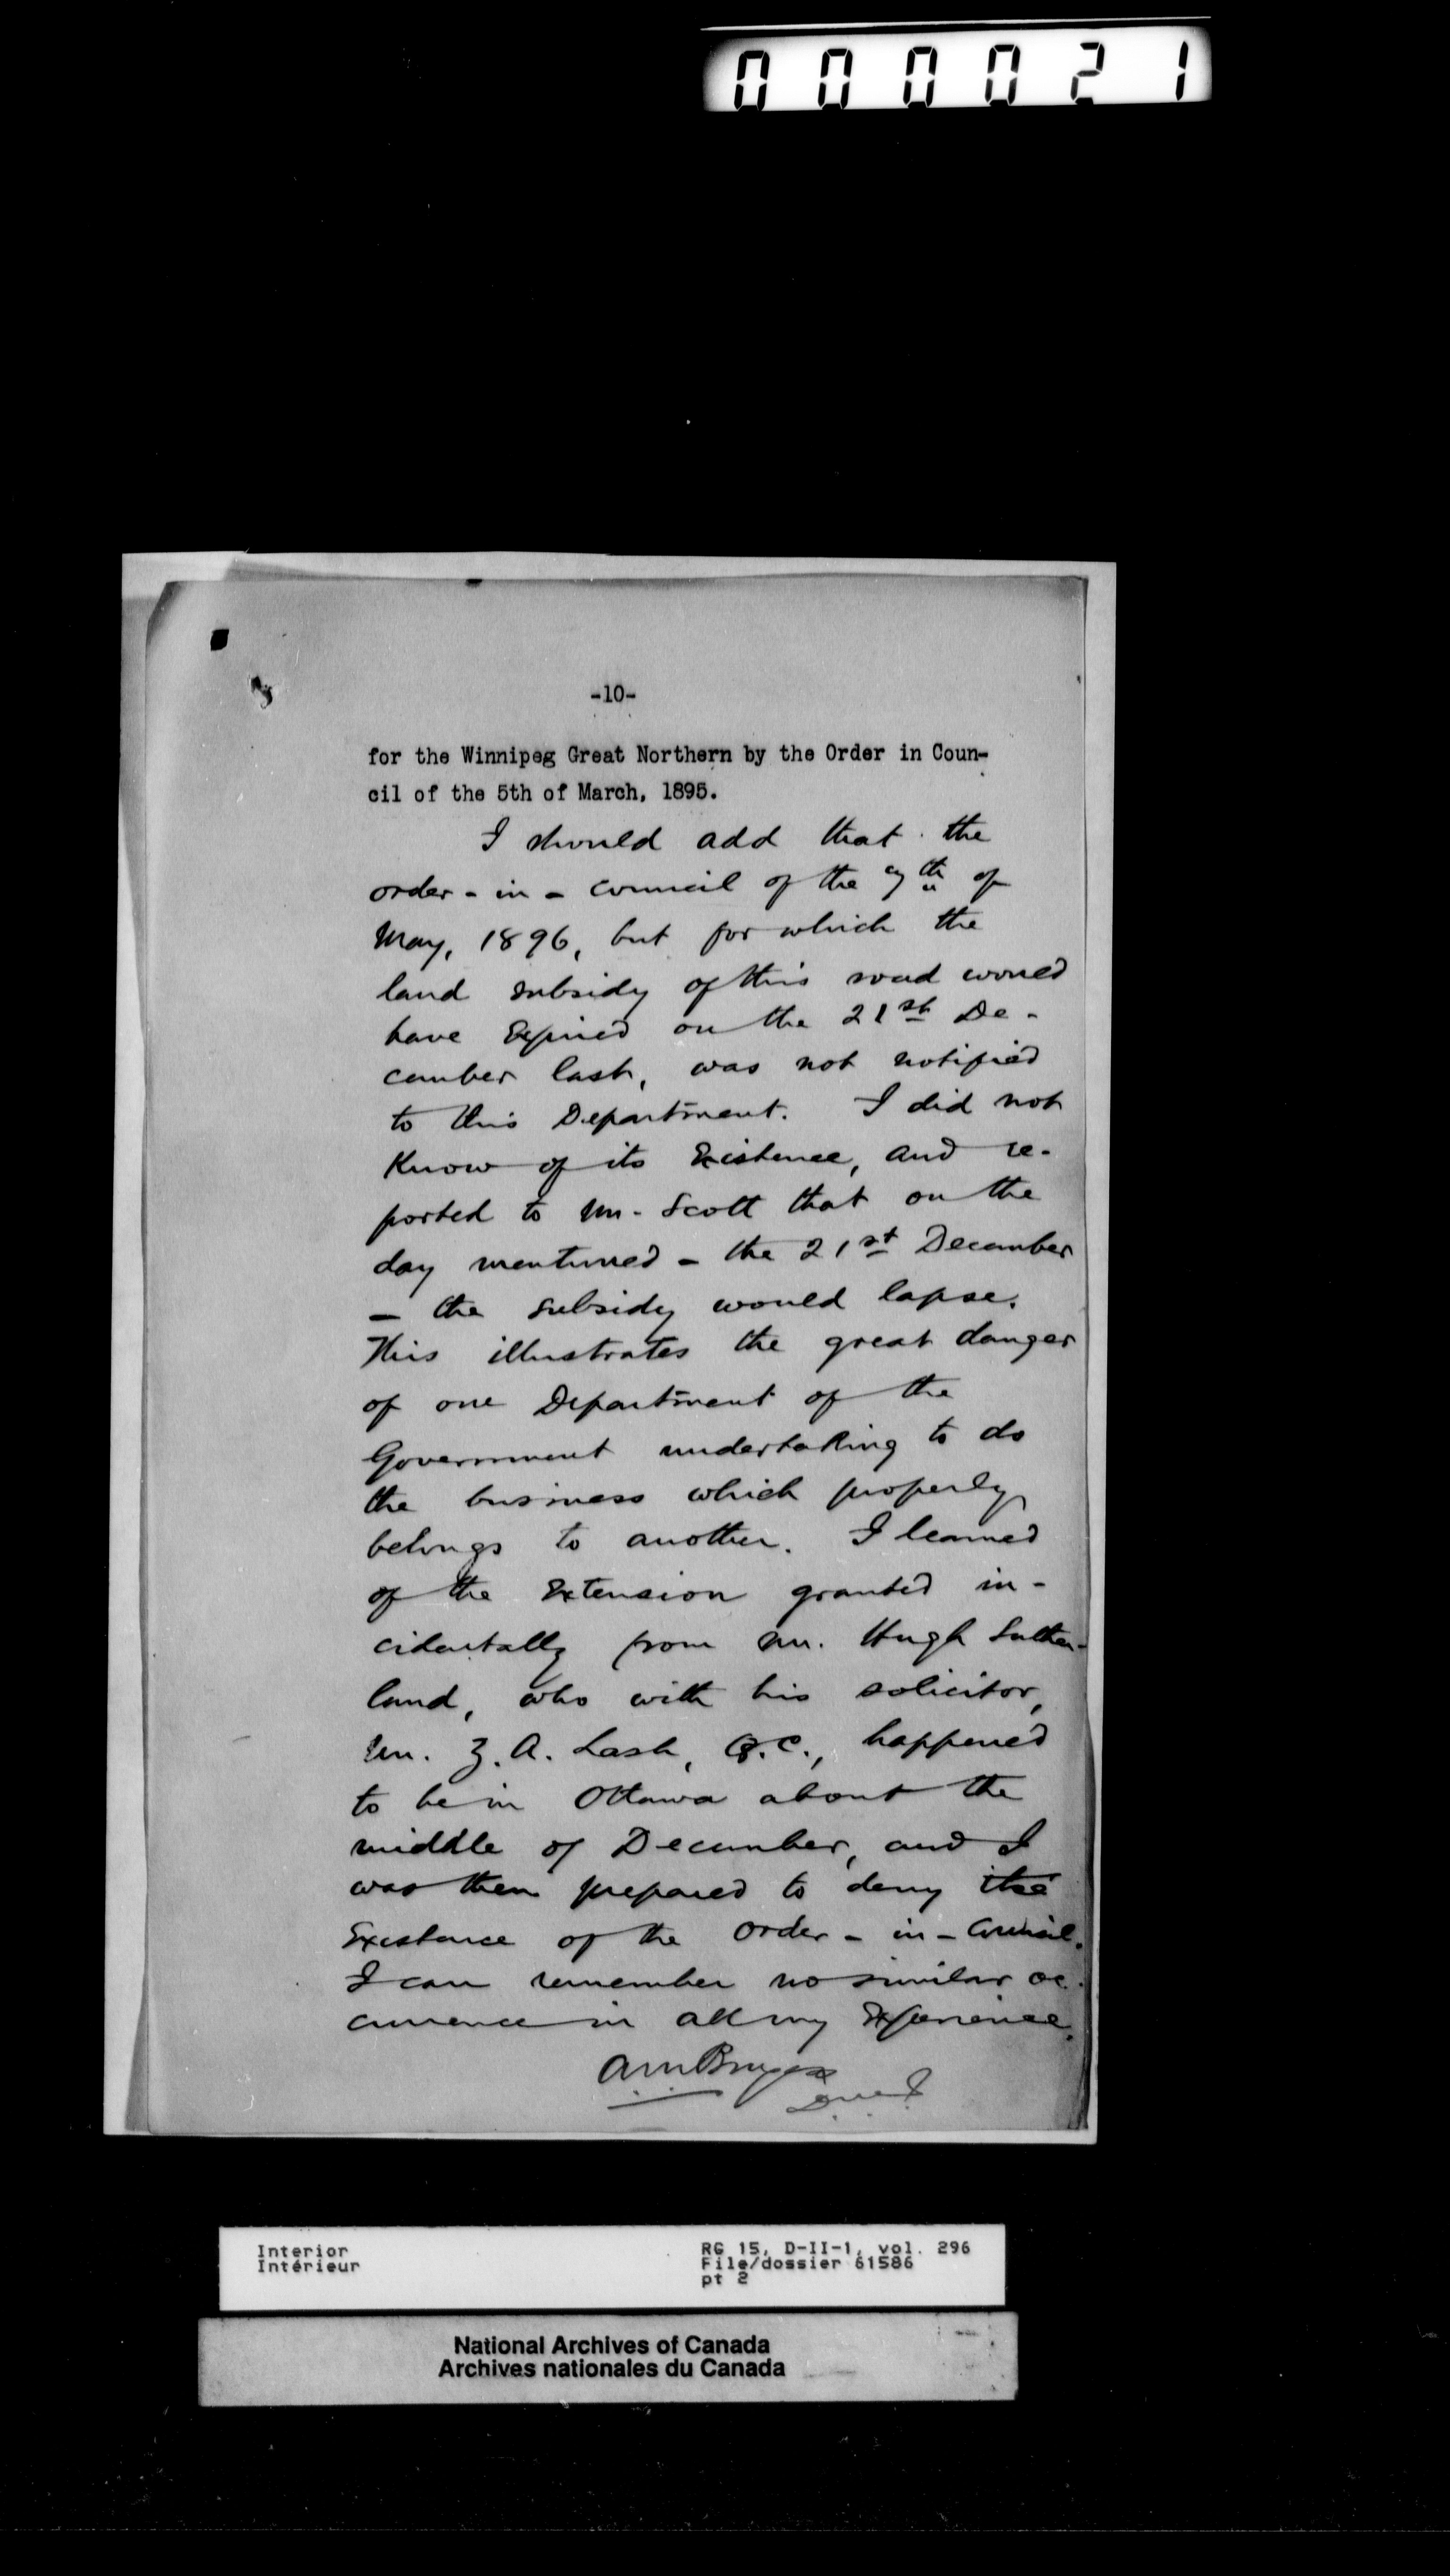 000021
-10-
for the Winnipeg Great Northern by the Order in Coun-
cil of the 5th of March, 1895.
I should add that the
order-in-council of the 7th of
May, 1896, but for which the
land subsidy of this road would
have Expired on the 21st De-
cember last, was not notified
to this Department. I did not
Know of its Existence, and re-
ported to Mr. Scott that on the
day mentioned - the 21st December
- the subsidy would lapse.
This illustrates the great danger
of one Department of the
Government undertaking to do
the business which properly
belongs to another. I learned
of the Extension granted in-
cidentally from Mr. Hugh Suther-
land, who with his solicitor,
Mr. Z. A. Lash, Q.C., happened
to be in Ottawa about the
middle of December, and I
was then prepared to deny the
Existence of the order-in-Council.
I can remember no similar oc-
currence in all my Experience.
AM Burgess
Interior
Intérieur
RG 15, D-II-1, vol. 296
File/dossier 61586
pt 2
National Archives of Canada
Archives nationales du Canada